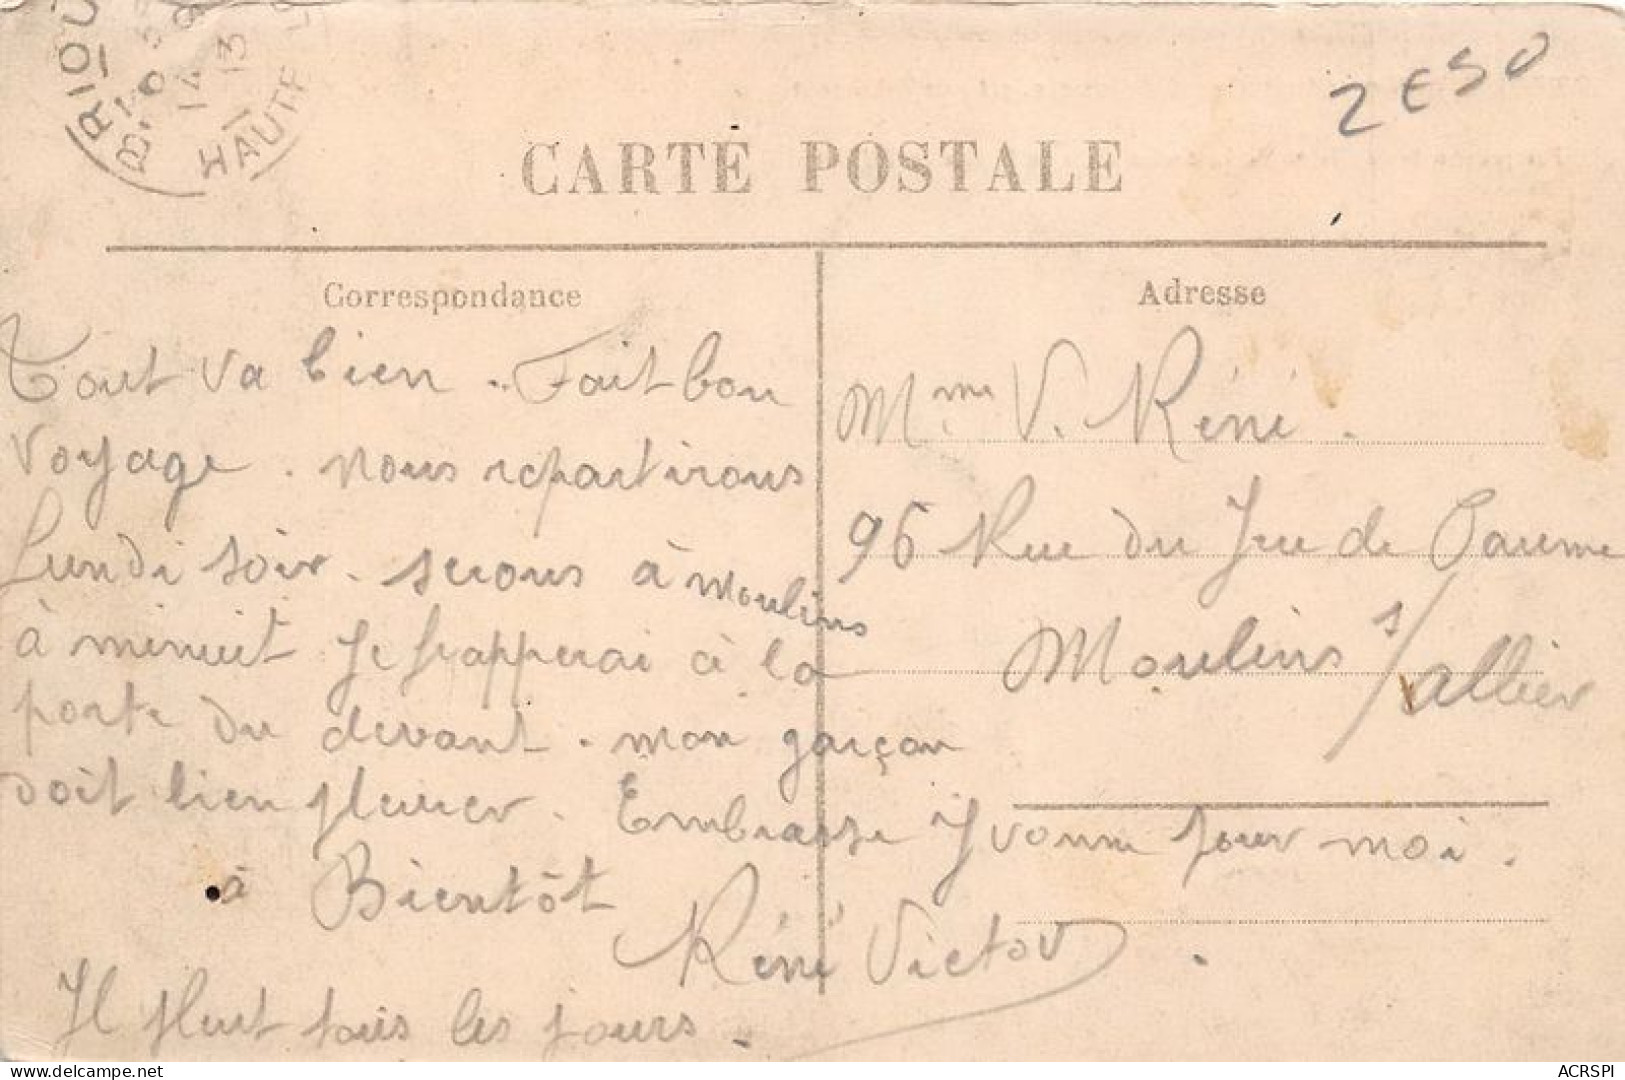 BRIOU
14 9
13
HAUTE L
2€50
CARTE POSTALE
Correspondance
Adresse
Tout va bien .. Fait bon
voyage . nous repartirons
Lundi soir . serons à moulins
à minuit Je frapperai à la
porte du devant . mon garçon
doit bien pleurer . Embrasse Yvonne pour moi .
à Bientôt
Réné Victor .
Il pleut tous les jours .
Mme V. Réné .
96 Rue du Jeu de Paume
Moulins s/allier
delcampe.net
ACRSPI